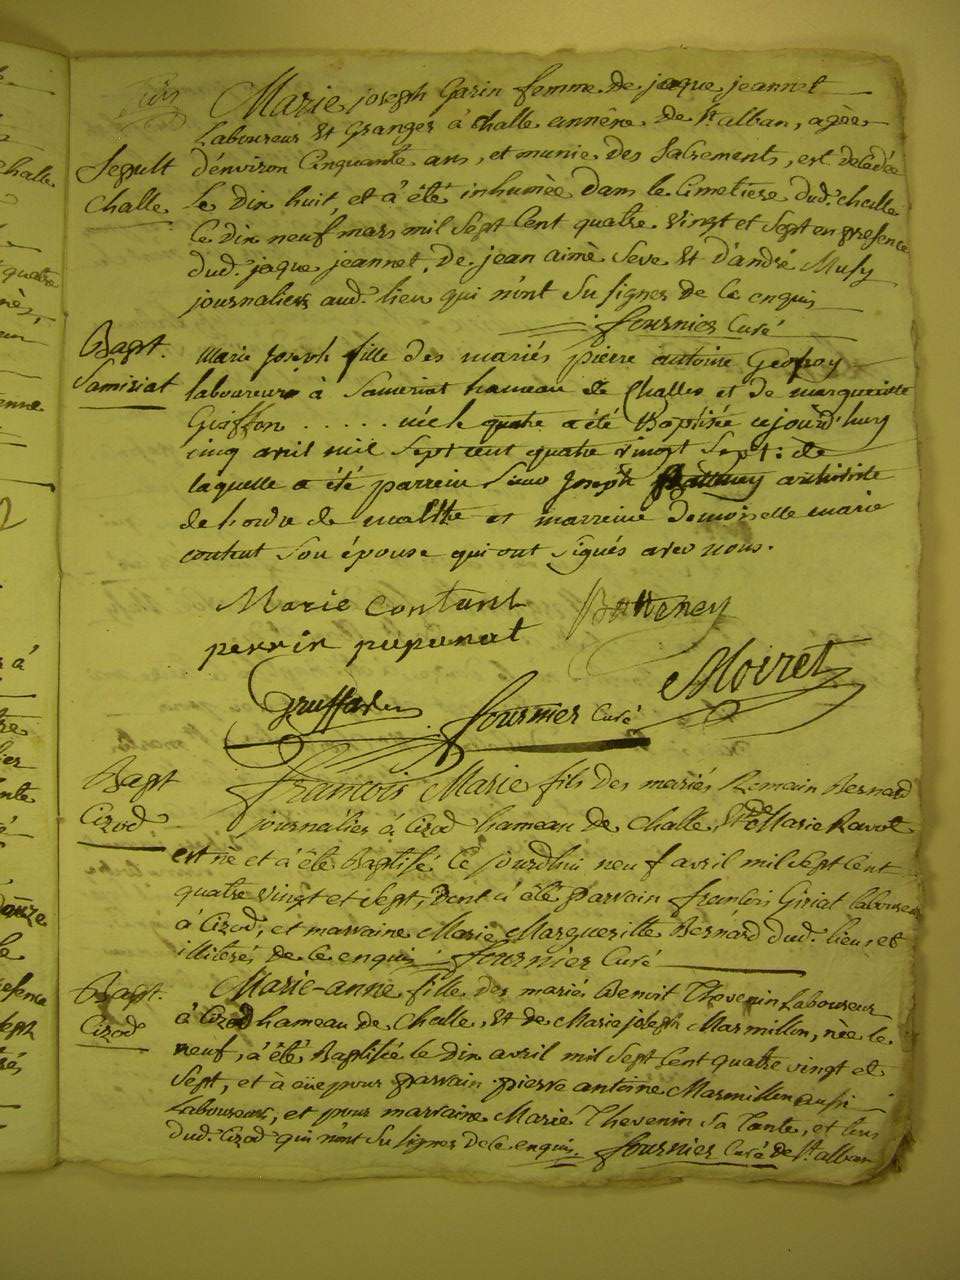 Marie joseph Garin femme de jaque jeannet
Laboureur et Granger à Challe annêxe de St. alban, agèe
Sepult
d'environ Cinquante ans, et munie des Sacrements, est decedée
Challe
le dix huit, et à été inhumèe dans le Cimetière dud. challe
Ce dix neuf mars mil Sept Cent quatre vingt et Sept en presence
dud. jaque jeannet, de jean aimè Seve et d'andré Musy
journaliers aud. lieu qui n'ont Su signer de Ce enquis
fournier Curé
Bapt.
Samiriat
Marie Joseph fille des mariés pierre antoine
laboureur à Sameriat hameau de Challes et de marguerite
Gieffon . . . . . . née le quatre a été Baptisée aujourd'huy
cinq avril mil Sept cent quatre vingt Sept: de
laquelle a été parrein Sieur Joseph
de l'ordre de malthe et marreine Demoiselle marie
contant Son épouse qui ont Signés avec nous.
Marie Contant Batteney
perrin papunat
Moiret
fournier Curé
Bapt
Cizod
francois Marie fils des mariés Romain Bernard
journalier à Cizod hameau de Challe, et de Marie Ravot
est nè et à êtè Baptisé Ce jourdhui neuf avril mil Sept Cent
quatre vingt et Sept, Dont à êtè parrain françois Giriat laboureur
à Cizod, et marraine Marie Margueritte Bernard dud. lieu et
illiterés de Ce enquis fournier Curé
Bapt.
Cizod
Marie-anne fille des mariés Benoit Thevenin Laboureur
à Cizod hameau de Challe, et de Marie joseph Marmillon, nèe le
neuf, à été Baptisée le dix avril mil Sept Cent quatre vingt et
Sept, et à eüe pour parrain pierre antoine Marmillon aussi
Laboureur, et pour marraine Marie Thevenin Sa Tante, et tous
dud. Cizod qui n'ont Su signer de Ce enquis. fournier Curé de St. alban